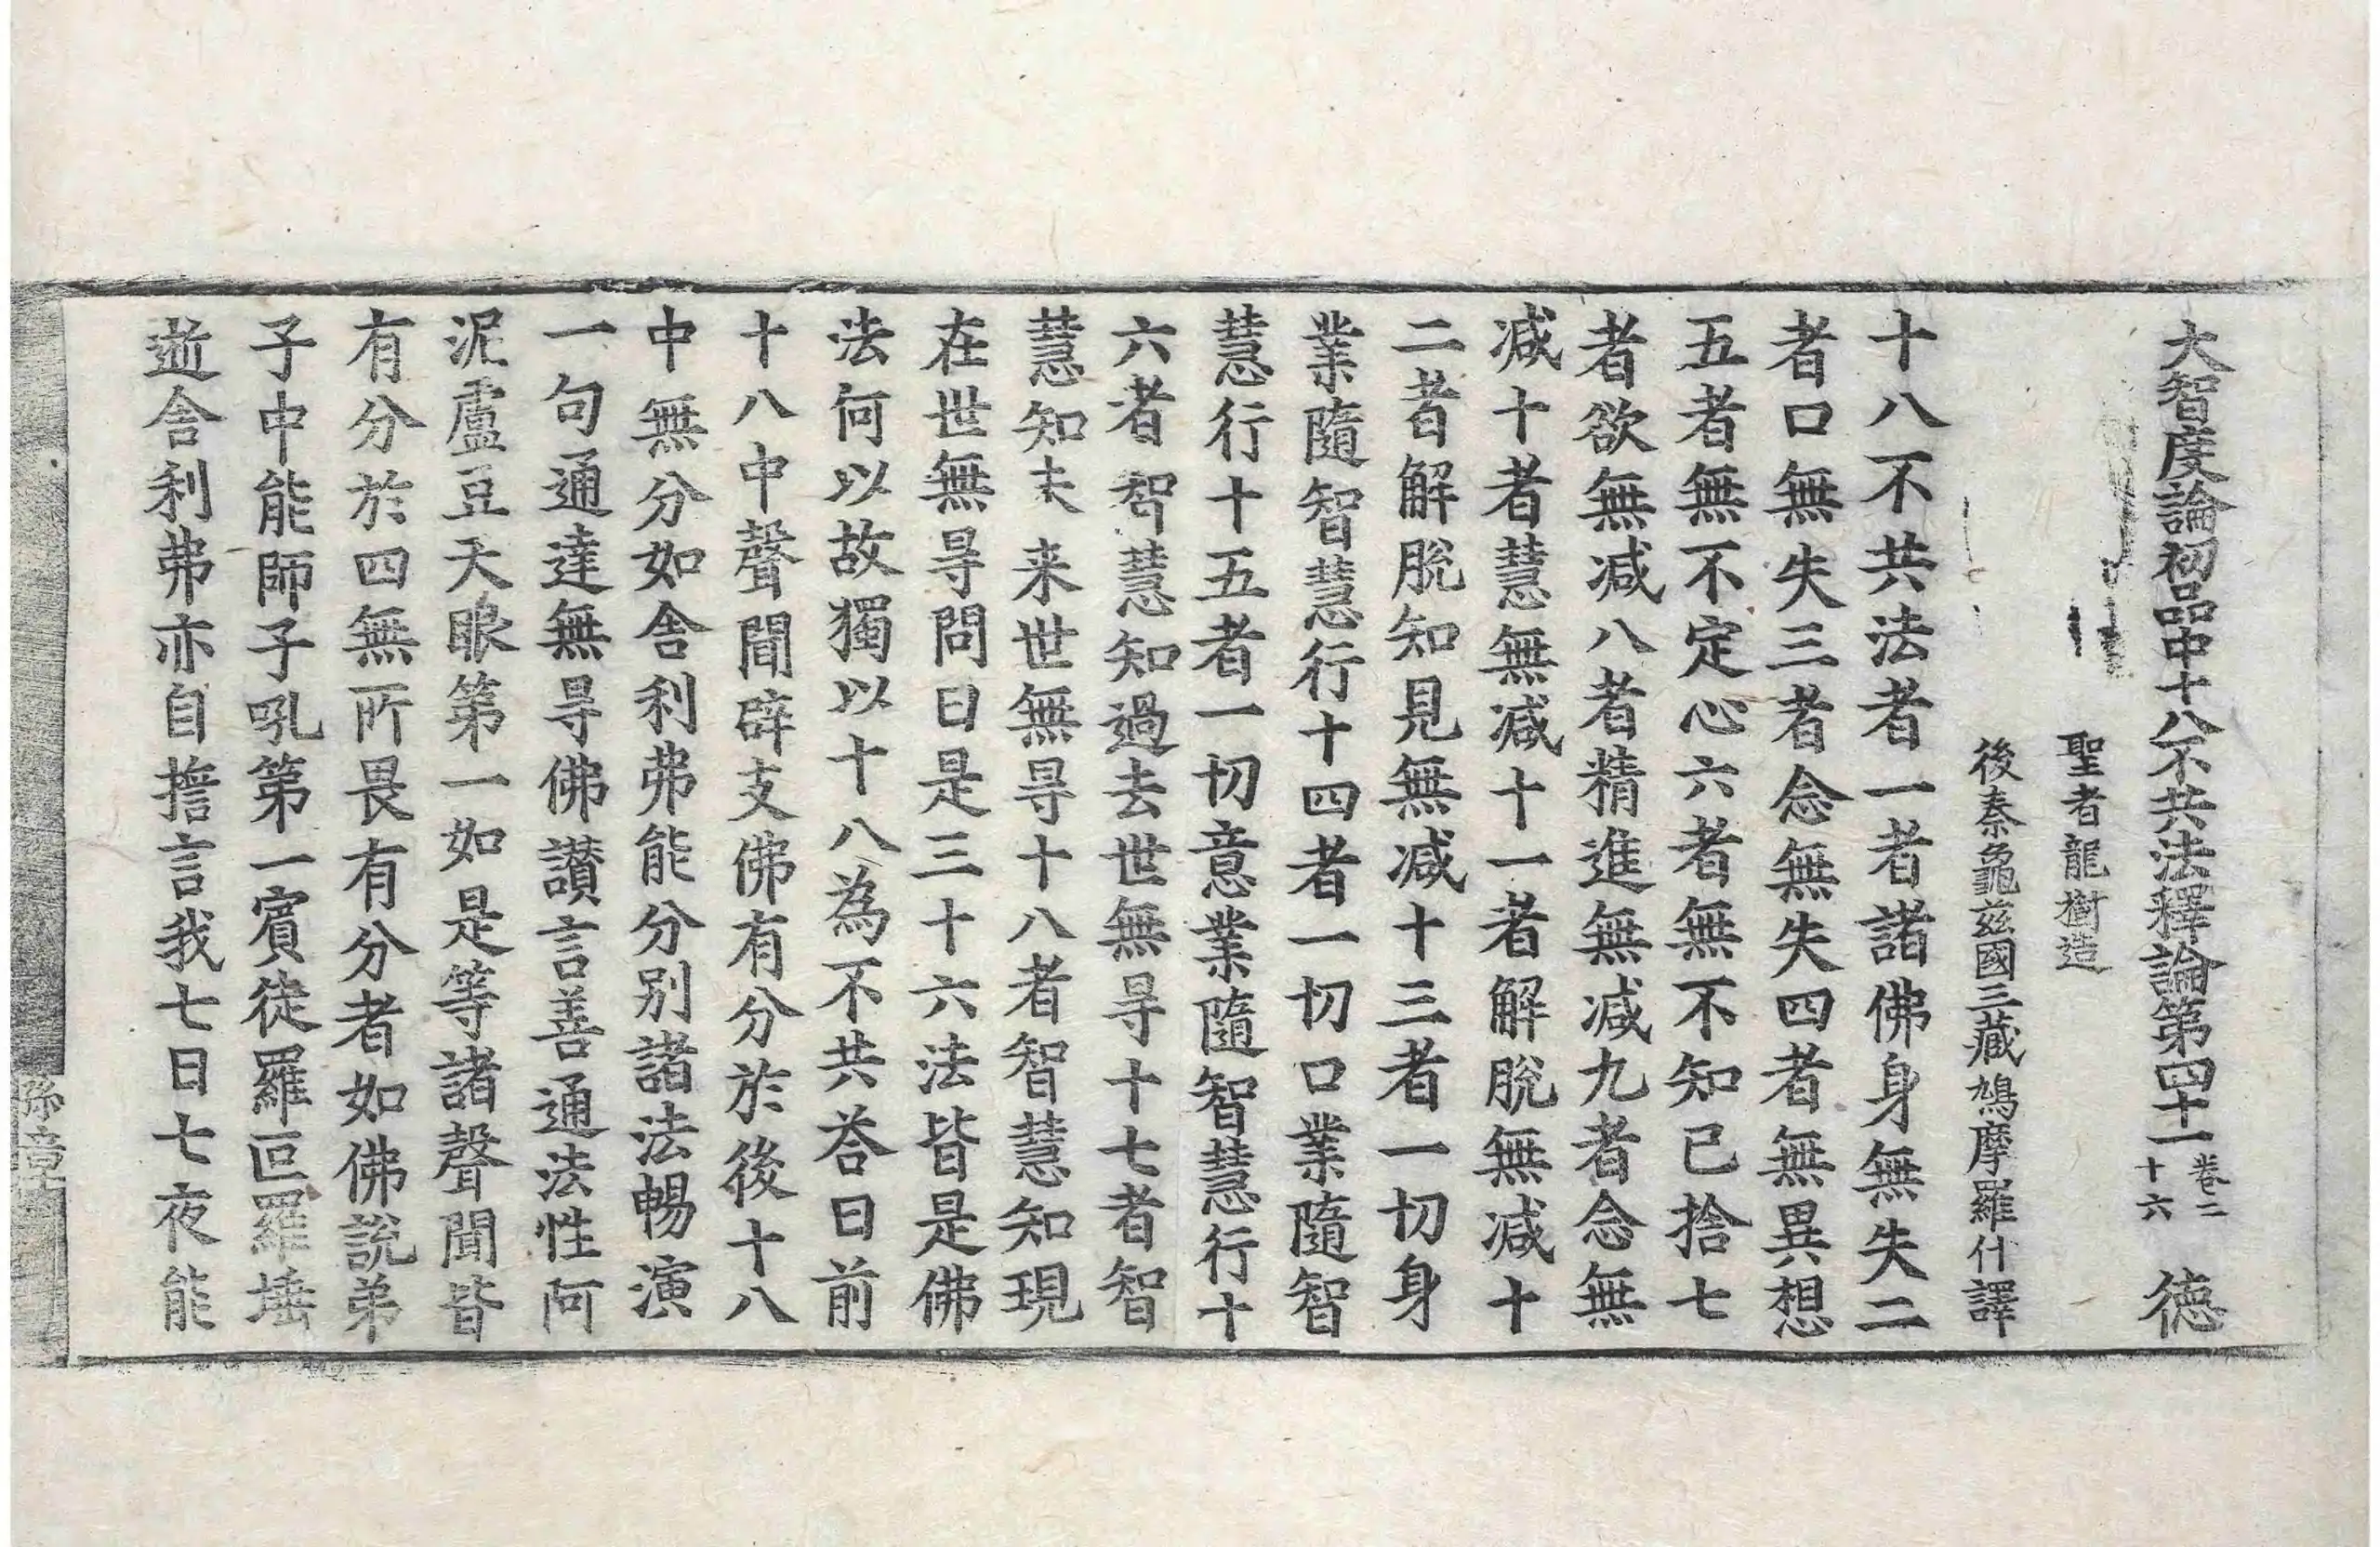 大智度論初品中十八不共法釋論第四十一 卷二十六 德
聖者龍樹造
後秦龜兹國三藏鳩摩羅什譯
十八不共法者一者諸佛身無失二
者口無失三者念無失四者無異想
五者無不定心六者無不知已捨七
者欲無減八者精進無減九者念無
減十者慧無減十一者解脫無減十
二者解脫知見無減十三者一切身
業隨智慧行十四者一切口業隨智
慧行十五者一切意業隨智慧行十
六者智慧知過去世無㝵十七者智
慧知未来世無㝵十八者智慧知現
在世無㝵問曰是三十六法皆是佛
法何以故獨以十八為不共荅曰前
十八中聲聞辟支佛有分於後十八
中無分如舍利弗能分別諸法暢演
一句通達無㝵佛讃言善通法性阿
泥盧豆天眼第一如是等諸聲聞皆
有分於四無所畏有分者如佛說弟
子中能師子吼第一賓徒羅叵羅埵
逝舍利弗亦自擔言我七日七夜能
孫章